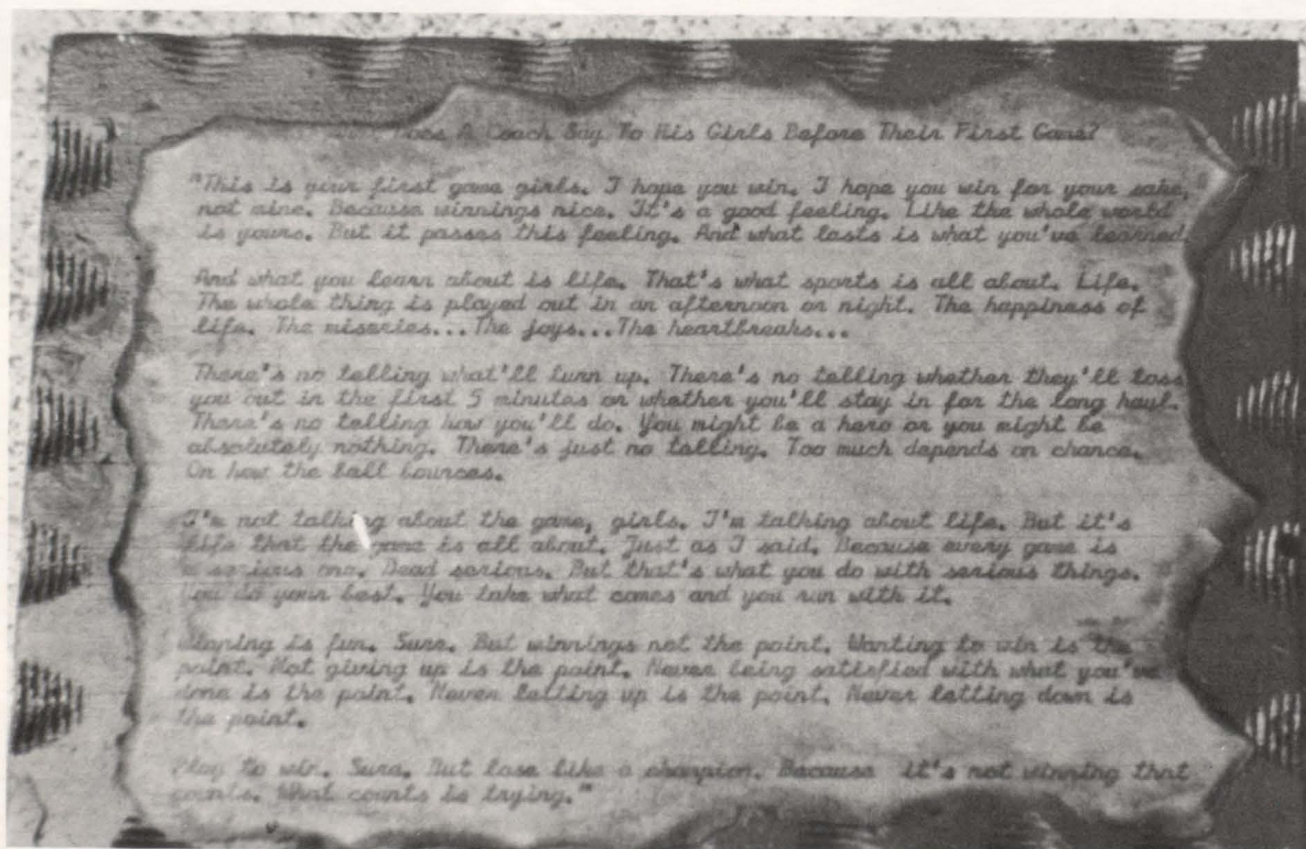 Does A Coach Say To His Girls Before Their First Game?
"This is your first game girls. I hope you win. I hope you win for your sake,
not mine. Because winnings nice. It's a good feeling. Like the whole world
is yours. But it passes this feeling. And what lasts is what you've learned
And what you learn about is life. That's what sports is all about. Life.
The whole thing is played out in an afternoon or night. The happiness of
life. The miseries...The joys...The heartbreaks...
There's no telling what'll turn up. There's no telling whether they'll toss
you out in the first 5 minutes or whether you'll stay in for the long haul.
There's no telling how you'll do. You might be a hero or you might be
absolutely nothing. There's just no telling. Too much depends on chance.
On how the ball bounces.
I'm not talking about the game, girls. I'm talking about life. But it's
life that the game is all about. Just as I said. Because every game is
a serious one. Dead serious. But that's what you do with serious things.
You do your best. You take what comes and you run with it.
is fun. Sure. But winnings not the point. Wanting to win is the
point. Not giving up is the point. Never being satisfied with what you've
done is the point. Never letting up is the point. Never letting down is
the point.
Play to win. Sure. But lose like a champion. Because it's not winning that
counts. What counts is trying."